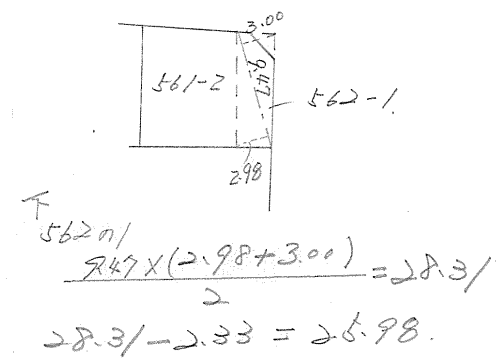 3.00
561-2
9.47
562-1
2.98
562の1
9.47×(2.98+3.00)
2
=28.31
28.31-2.33=25.98.